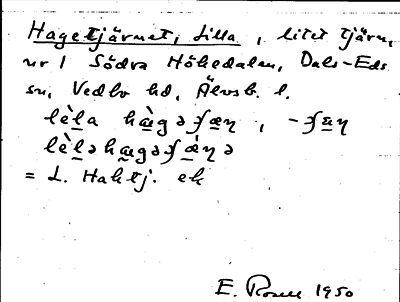 Hagetjärnet, Lilla, litet tjärn,
nr 1 Södra Hökedalen, Dals-Eds
sn, Vedbo hd, Älvsb. l.
lèla hægə ʃæŋ, -ʃæŋ
lèlə hægə ʃæ̀ŋə
= L. Haktj. ek
E. 1950